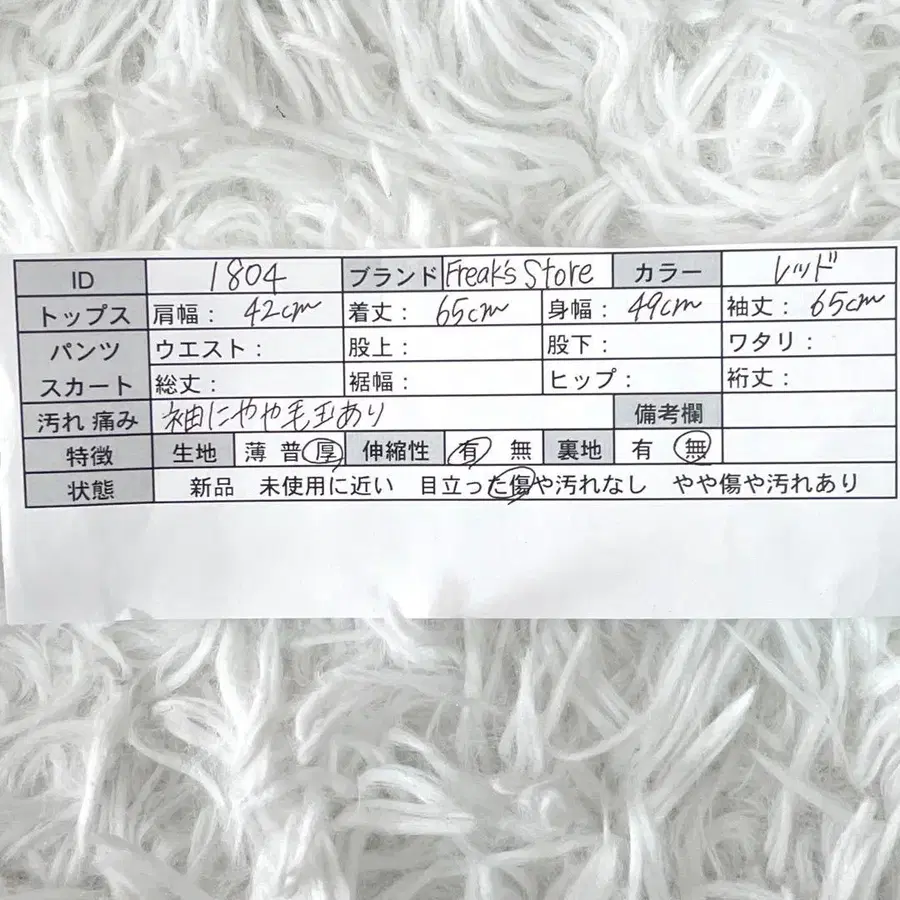 ID 1804 ブランド Freak's Store カラー レッド
トップス 肩幅： 42cm 着丈： 65cm 身幅： 49cm 袖丈： 65cm
パンツ ウエスト： 股上： 股下： ワタリ：
スカート 総丈： 裾幅： ヒップ： 裄丈：
汚れ 痛み 袖にやや毛玉あり 備考欄
特徴 生地 薄 普 厚 伸縮性 有 無 裏地 有 無
状態 新品 未使用に近い 目立った傷や汚れなし やや傷や汚れあり